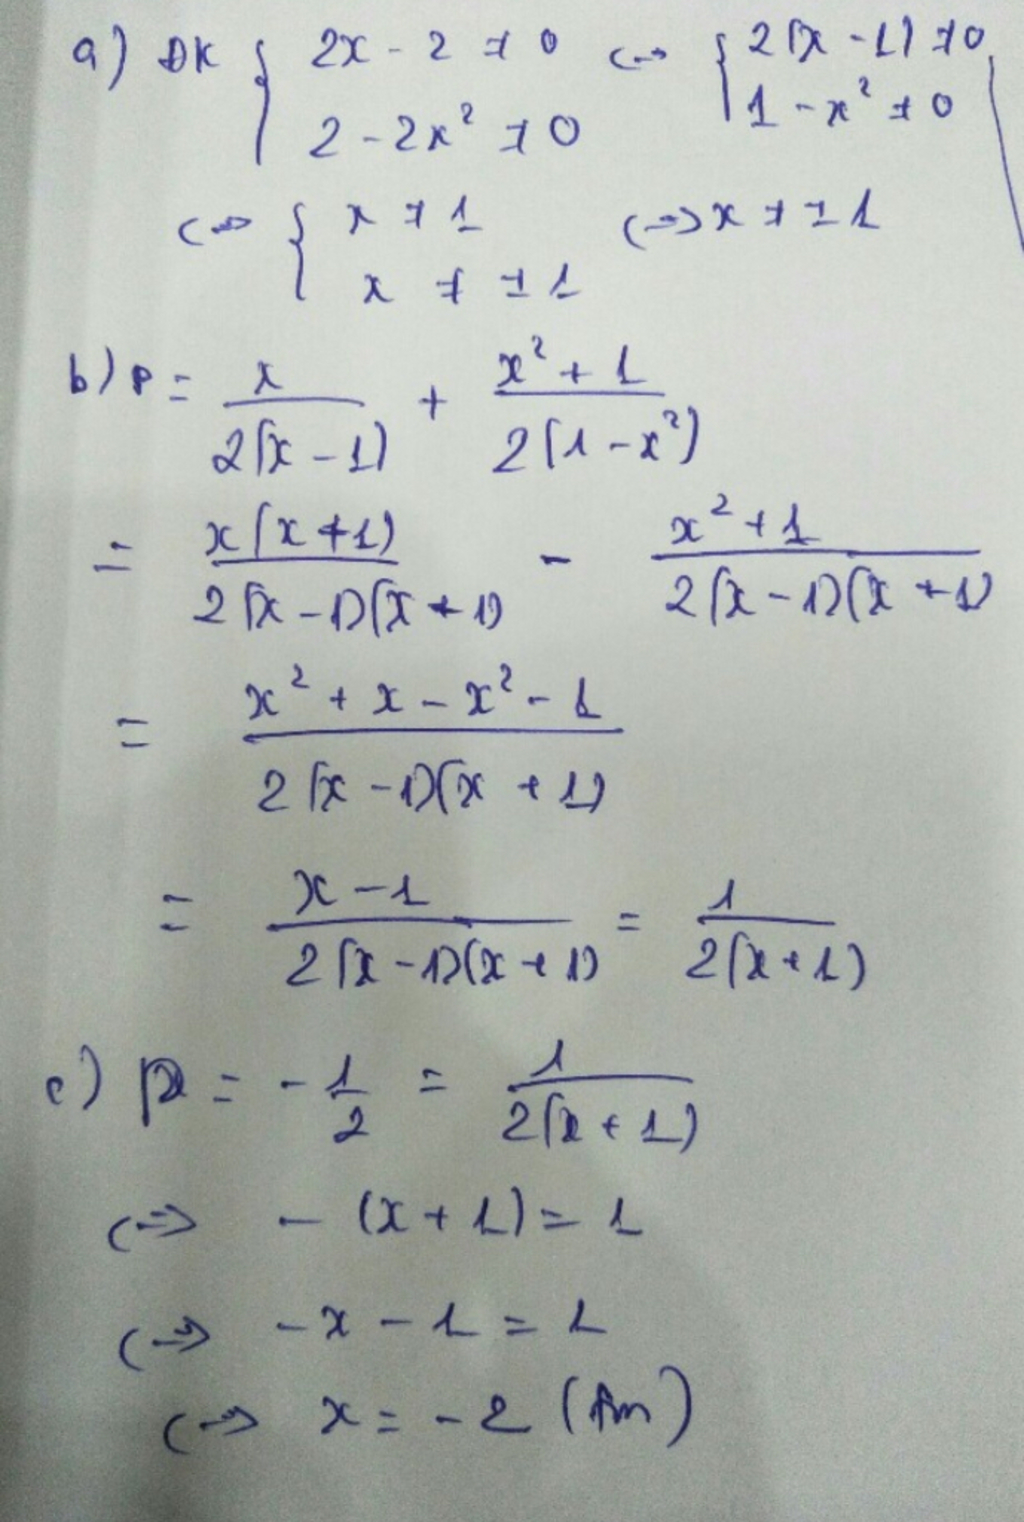 a) ĐK { 2x - 2 ≠ 0 <=> { 2(x - 1) ≠ 0
2 - 2x² ≠ 0 1 - x² ≠ 0
<=> { x ≠ 1 <=> x ≠ ±1
x ≠ ±1
b) P = x/(2(x - 1)) + (x² + 1)/(2(1 - x²))
= x(x + 1)/(2(x - 1)(x + 1)) - (x² + 1)/(2(x - 1)(x + 1))
= (x² + x - x² - 1)/(2(x - 1)(x + 1))
= (x - 1)/(2(x - 1)(x + 1)) = 1/(2(x + 1))
c) P = -1/2 = 1/(2(x + 1))
<=> - (x + 1) = 1
<=> -x - 1 = 1
<=> x = -2 (tm)